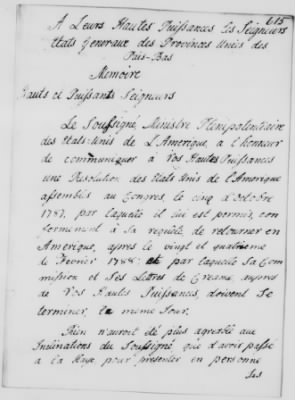 615
A Leurs Hautes Puissances les Seigneurs
Etats Generaux des Provinces Unies des
Païs-Bas
Memoire
Hauts et Puissants Seigneurs
Le Soussigné, Ministre Plenipotentiaire
des Etats-Unis de L'Amerique, a l'honneur
de communiquer à Vos Hautes Puissances
une Resolution des Etats Unis de l'Amerique
assemblés au Congres, le cinq d'Octobre
1787, par laquelle il lui est permis, con
formement à Sa requête de retourner en
Amerique, apres le vingt et quatrieme
de Fevrier 1788. et par laquelle Sa Com
mission et Ses Lettres de Creance, aupres
de Vos Hautes Puissances, doivent Se
terminer, le même Jour.
Rien n'auroit été plus agreable aux
Inclinations du Soussigné que d'avoir passé
a la Haye, pour presenter en personne
Ses